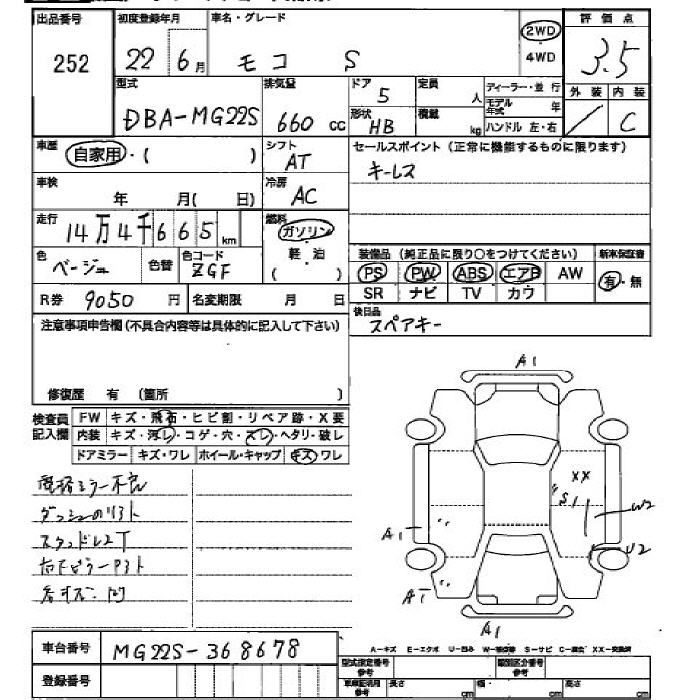 出品番号 初度登録年月 車名・グレード 2WD 評価点
252 22年 6月 モコ S 4WD 3.5
型式 排気量 ドア 定員 ディーラー・並行 外装 内装
DBA-MG22S 660cc 5 人 モデル年式 年 / C
形状 積載
HB kg ハンドル 左・右
車歴 自家用・( ) シフト セールスポイント(正常に機能するものに限ります)
AT キーレス
車検 年 月( 日) 冷房
AC
走行 14万4千665km 燃料
ガソリン
色 ベージュ 色替 色コード ZGF 軽油 装備品(純正品に限り○をつけてください) 新車保証書
( ) PS PW ABS エアB AW 有・無
R券 9050円 名変期限 月 日 SR ナビ TV カワ
注意事項申告欄(不具合内容等は具体的に記入して下さい) 後日品
スペアキー
修復歴 有 (箇所 )
検査員記入欄 FW キズ・飛石・ヒビ割・リペア跡・X要
内装 キズ・汚レ・コゲ・穴・スレ・ヘタリ・破レ
ドアミラー キズ・ワレ ホイール・キャップ キズ・ワレ
A1
XX
S1
W2
A1 U2
A1
A1
車台番号 MG22S-368678
A-キズ E-エクボ U-凹み S-サビ XX-交換済
登録番号 型式指定番号 参考 類別区分番号 参考
長さ cm 幅 cm 高さ cm